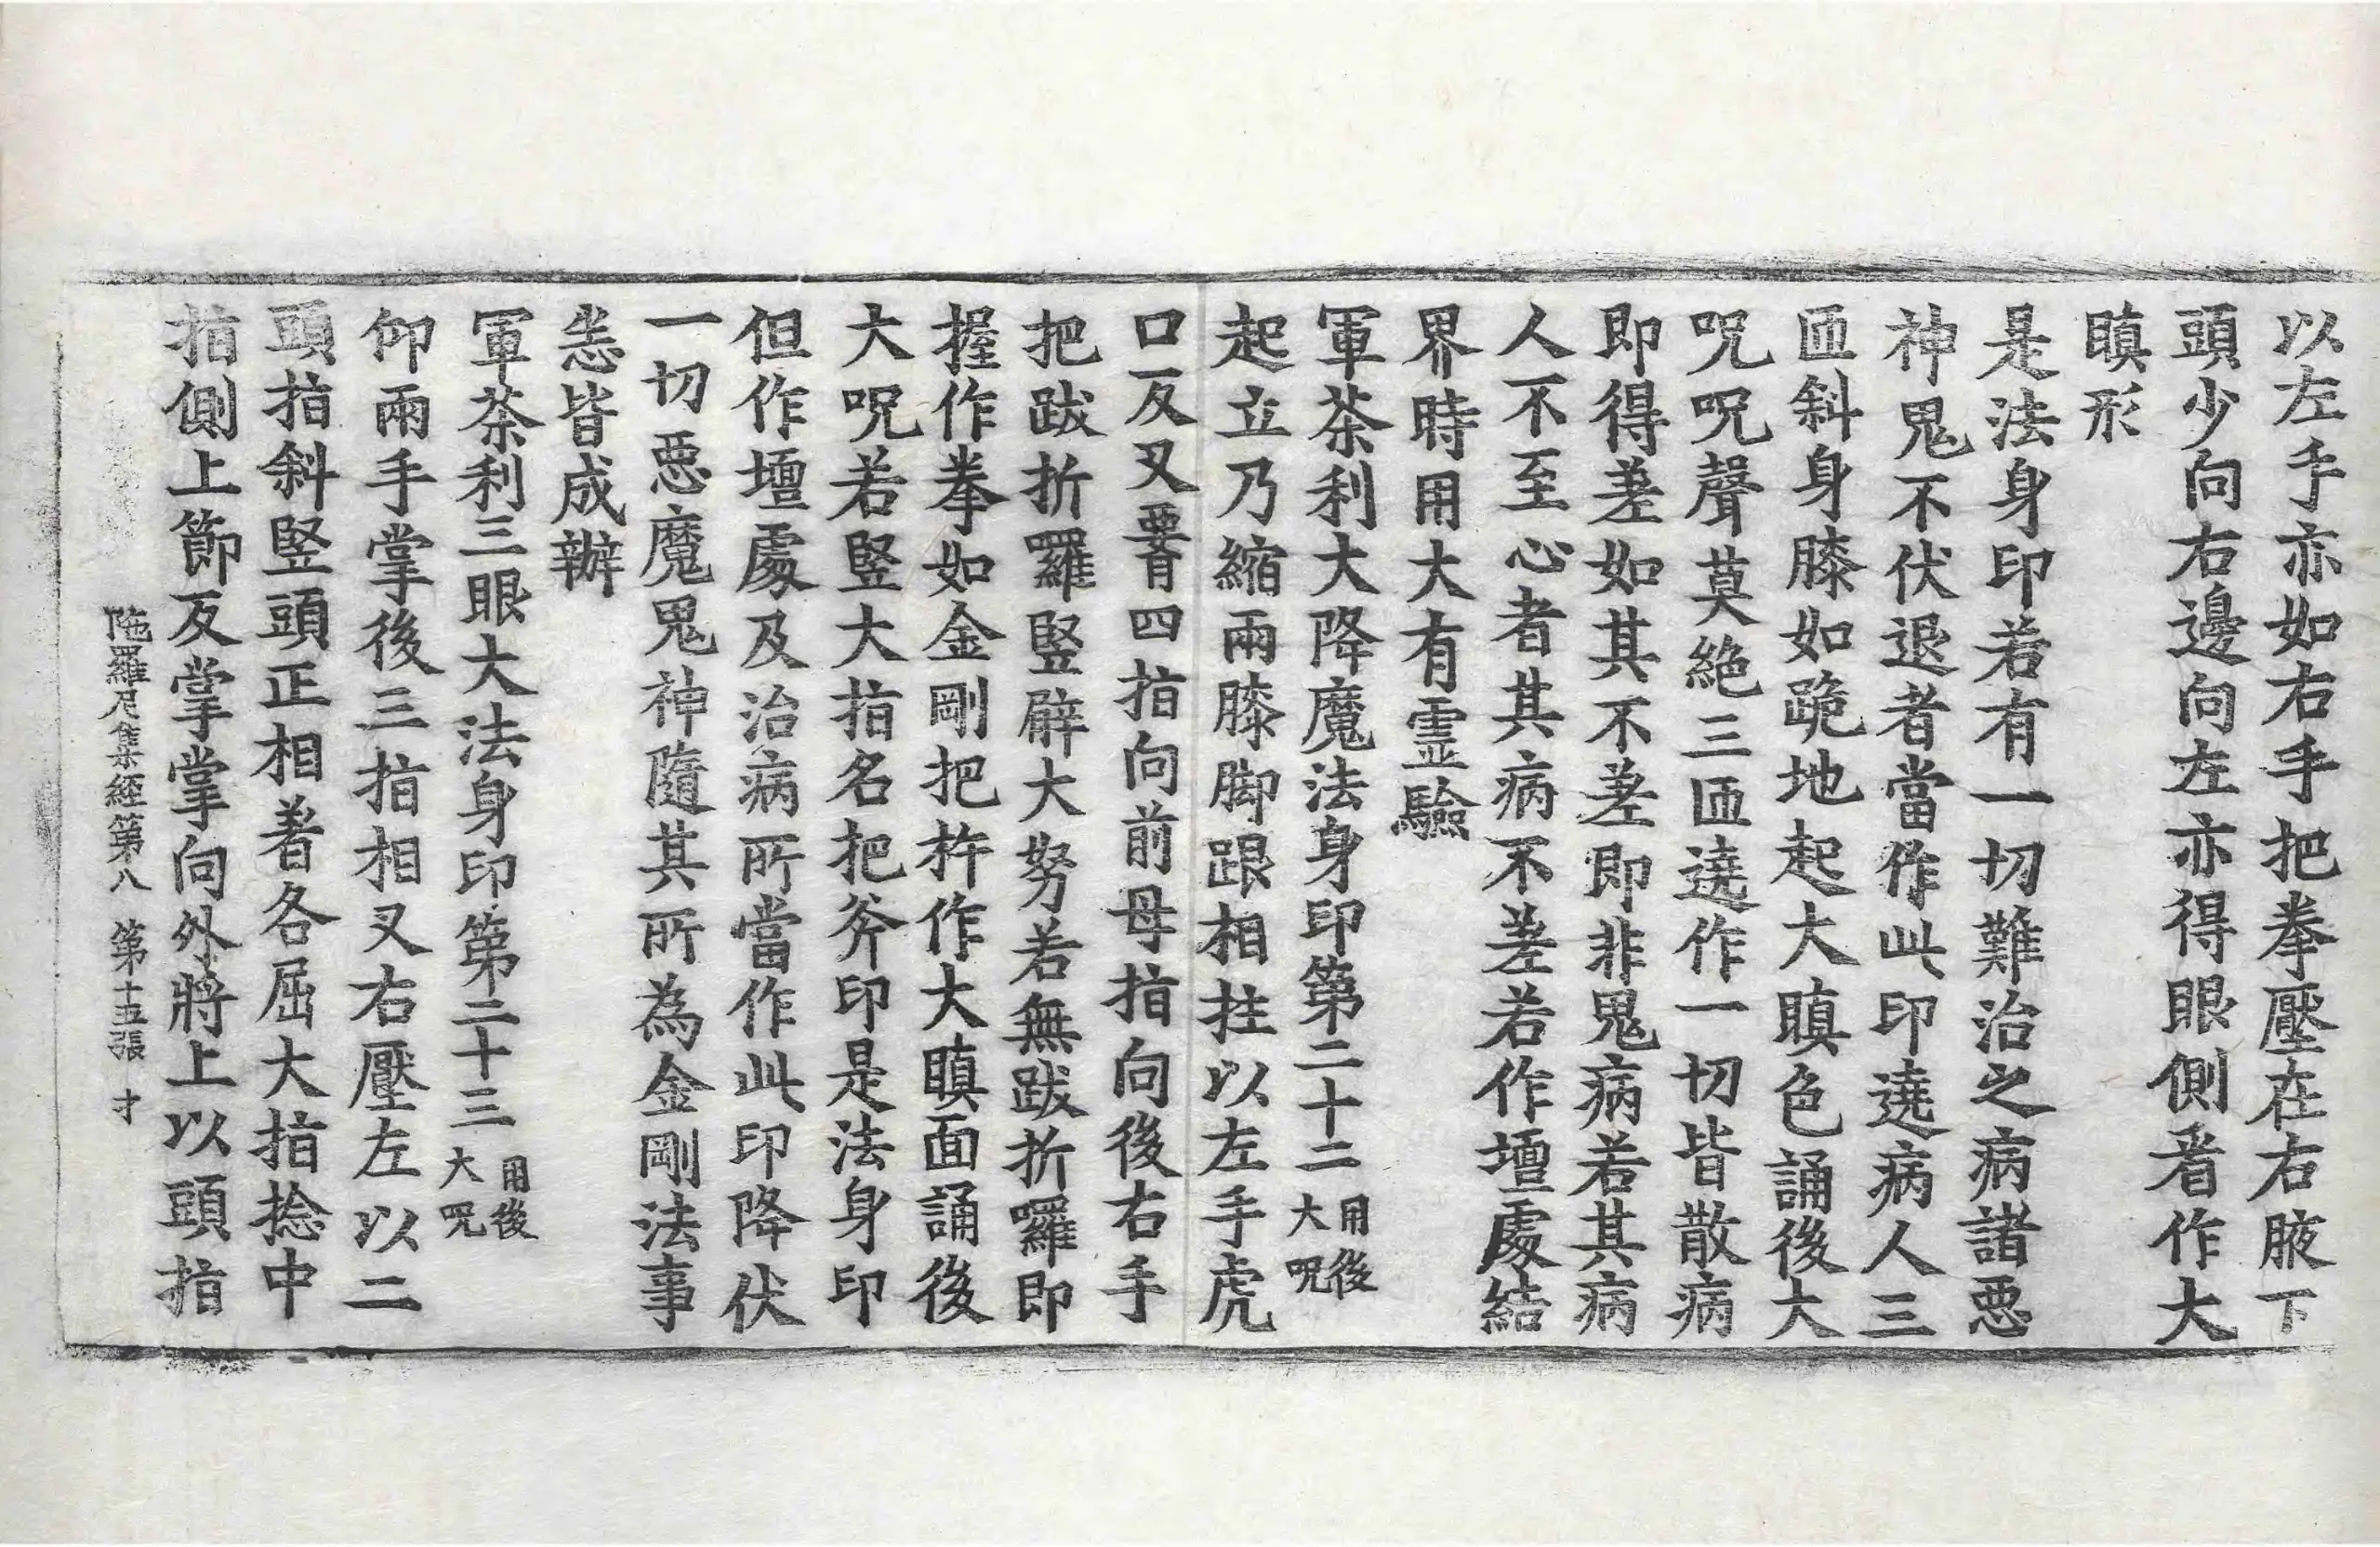 以左手亦如右手把拳壓在右腋下
頭少向右邊向左亦得眼側看作大
瞋形
是法身印若有一切難治之病諸惡
神鬼不伏退者當作此印遶病人三
匝斜身膝如跪地起大瞋色誦後大
呪呪聲莫絶三匝遶作一切皆散病
即得差如其不差即非鬼病若其病
人不至心者其病不差若作壇處結
界時用大有霊驗
軍茶利大降魔法身印第二十二用後大呪
起立乃縮兩膝脚跟相拄以左手虎
口反叉䙅四指向前母指向後右手
把跋折羅竪臂大努若無跋折囉即
握作拳如金剛把杵作大瞋面誦後
大呪若竪大指名把斧印是法身印
但作壇處及治病所當作此印降伏
一切惡魔鬼神隨其所為金剛法事
恙皆成辦
軍茶利三眼大法身印第二十三用後大呪
仰兩手掌後三指相叉右壓左以二
頭指斜竪頭正相著各屈大指捻中
指側上節反掌掌向外將上以頭指
陁羅尼集經第八 第十五張 才